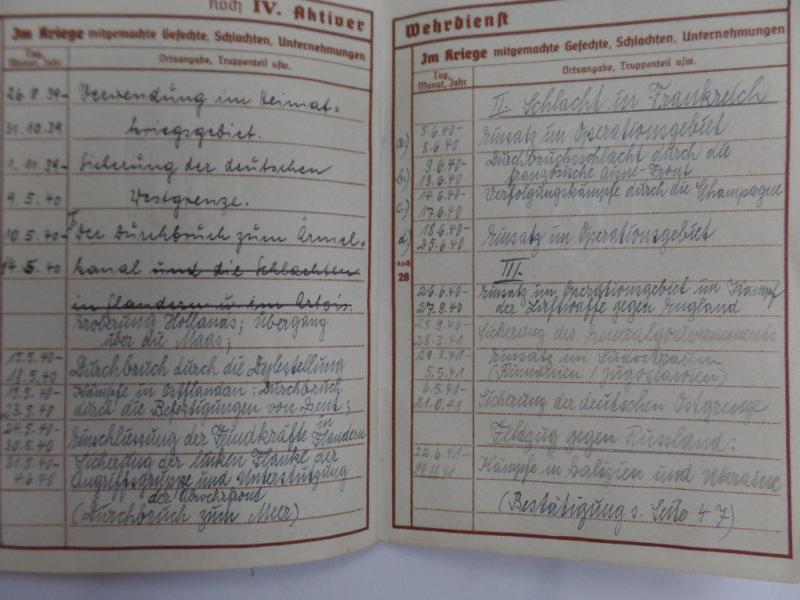 noch IV. Aktiver
Im Kriege mitgemachte Gefechte, Schlachten, Unternehmungen
Tag, Monat, Jahr
Ortsangabe, Truppenteil usw.
26.8.39- Verwendung im Heimat-
31.10.39 kriegsgebiet.
1.11.39- Sicherung der deutschen
9.5.40 Westgrenze.
I
10.5.40- Der Durchbruch zum Ärmel-
14.5.40 kanal und die Schlachten
in Flandern u. im Artois.
Eroberung Hollands; Übergang
über die Maas;
15.5.40- Durchbruch durch die Dylestellung
18.5.40
19.5.40- Kämpfe in Ostflandern; Durchbruch
23.5.40 durch die Befestigungen von Gent;
24.5.40- Einschliessung der Feindkräfte in Flandern
30.5.40
31.5.40- Sicherung der linken Flanke der
4.6.40 Angriffsgruppe und Unterstützung
der Abwehrfront
(Durchbruch zum Meer)
Wehrdienst
Im Kriege mitgemachte Gefechte, Schlachten, Unternehmungen
Tag, Monat, Jahr
Ortsangabe, Truppenteil usw.
II. Schlacht in Frankreich
a) 5.6.40- Einsatz im Operationsgebiet
8.6.40
b) 9.6.40- Durchbruchsschlacht durch die
13.6.40 französische Aisne-Front
c) 14.6.40- Verfolgungskämpfe durch die Champagne
17.6.40
d) 18.6.40- Einsatz im Operationsgebiet
25.6.40
28
III.
26.6.40- Einsatz im Operationsgebiet im Kampf
27.9.40 der Luftwaffe gegen England
28.9.40- Sicherung des Generalgouvernements
28.3.41
29.3.41- Einsatz im Südostraum
5.5.41 (Rumänien / Jugoslawien)
6.5.41- Sicherung der deutschen Ostgrenze
21.6.41
Feldzug gegen Russland.
22.6.41- Kämpfe in Galizien und Ukraine
(Bestätigung s. Seite 47)